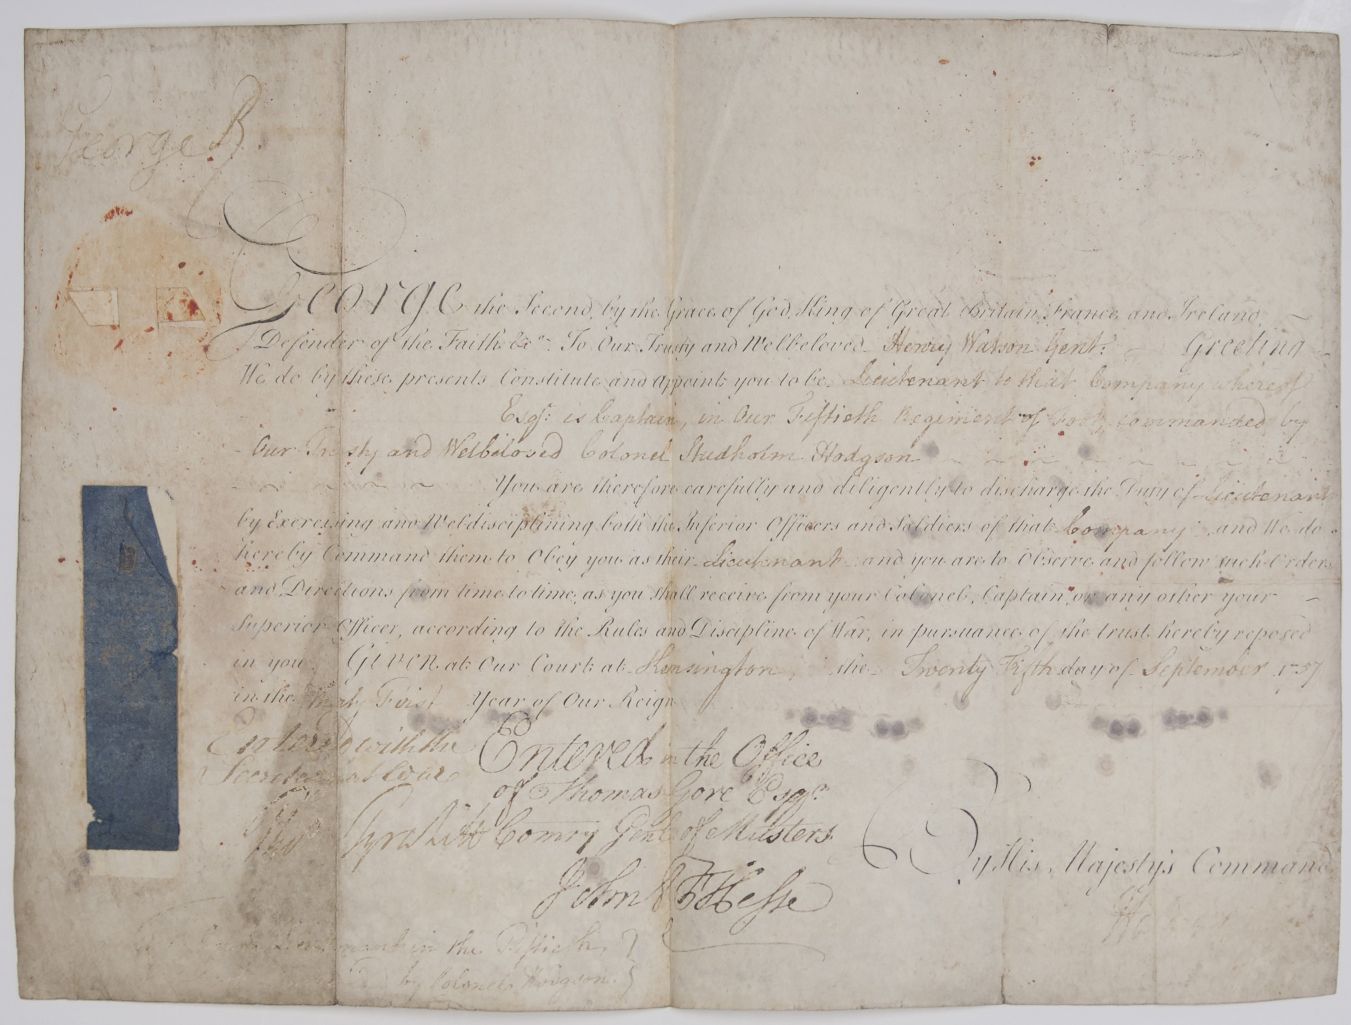 George R
George the Second, by the Grace of God, King of Great Britain, France, and Ireland,
Defender of the Faith &c.ª To Our Trusty and Welbeloved Henry Watson Gent: Greeting
We do by these presents Constitute and appoint you to be Lieutenant to that Company whereof
Esqr. is Captain, in Our Fiftieth Regiment of Foot, commanded by
Our Trusty and Welbeloved Colonel Studholm Hodgson
You are therefore carefully and diligently to discharge the Duty of Lieutenant
by Exercising and Weldisciplining both the Inferior Officers and Soldiers of that Company and We do
hereby Command them to Obey you as their Lieutenant and you are to Observe and follow such Orders
and Directions from time to time, as you shall receive from your Colonel, Captain, or any other your
Superior Officer, according to the Rules and Discipline of War, in pursuance of the trust hereby reposed
in you Given at Our Court at Kensington, the Twenty Fifth day of September 1757
in the Thirty First Year of Our Reign
Enter'd with the
Secretary at War
Entered in the Office
of Thomas Gore Esqr.
Comry Genl. of Musters
John F Hesse
By His Majesty's Command
Lieutenant in the Fiftieth
by Colonel Hodgson